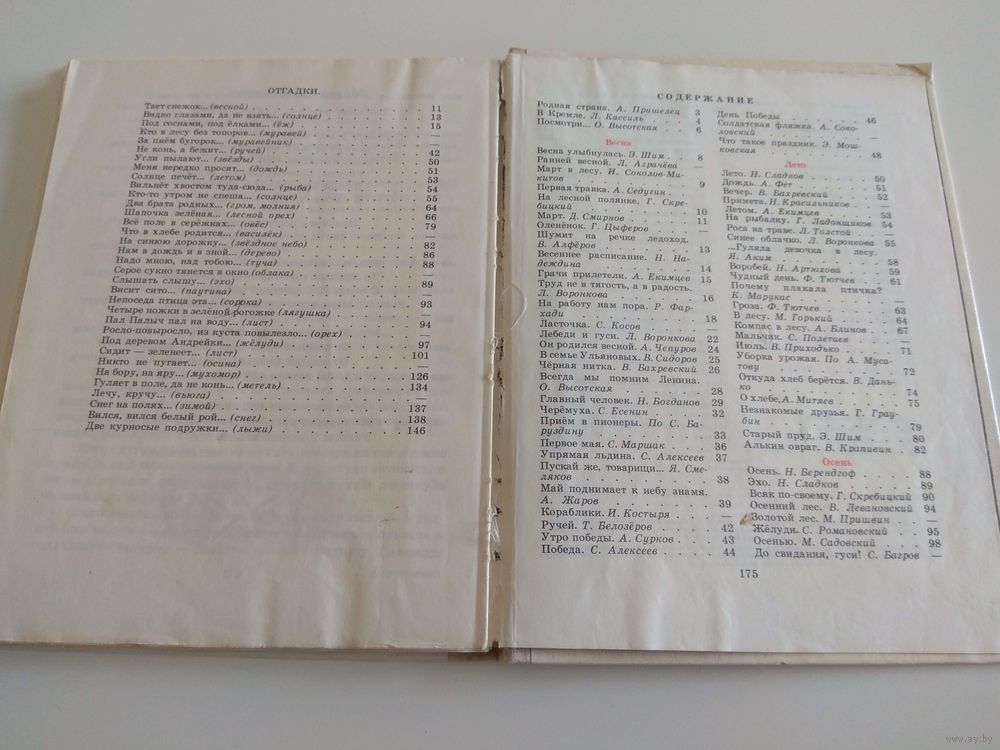 ОТГАДКИ.
Тает снежок... (весной) . . . . . . . . . . 11
Видно глазами, да не взять... (солнце) . . . . . . 13
Под соснами, под ёлками... (ёж) . . . . . . . . 15
Кто в лесу без топоров... (муравей) . . . . . . . —
За пнём бугорок... (муравейник) . . . . . . . —
Не конь, а бежит... (ручей) . . . . . . . . 42
Угли пылают... (звёзды) . . . . . . . . . 50
Меня нередко просят... (дождь) . . . . . . . 51
Солнце печёт... (летом) . . . . . . . . . 53
Вильнёт хвостом туда-сюда... (рыба) . . . . . . 54
Кто-то утром не спеша... (солнце) . . . . . . . 55
Два брата родных... (гром, молния) . . . . . . 64
Шапочка зелёная... (лесной орех) . . . . . . . 66
Всё поле в серёжках... (овёс) . . . . . . . . 79
Что в хлебе родится... (василёк) . . . . . . . —
На синюю дорожку... (звёздное небо) . . . . . . 82
Нам в дождь и в зной... (дерево) . . . . . . . 86
Надо мною, над тобою... (туча) . . . . . . . 88
Серое сукно тянется в окно (облака) . . . . . . —
Слышать слышу... (эхо) . . . . . . . . . 89
Висит сито... (паутина) . . . . . . . . . —
Непоседа птица эта... (сорока) . . . . . . . 93
Четыре ножки в зелёной рогожке (лягушка) . . . . —
Пал Палыч пал на воду... (лист) . . . . . . . 94
Росло-повыросло, из куста повылезло... (орех) . . . —
Под деревом Андрейки... (жёлуди) . . . . . . 97
Сидит — зеленеет... (лист) . . . . . . . . 101
Никто не пугает... (осина) . . . . . . . . —
На бору, на яру... (мухомор) . . . . . . . . 126
Гуляет в поле, да не конь... (метель) . . . . . . 134
Лечу, кручу... (вьюга) . . . . . . . . . —
Снег на полях... (зимой) . . . . . . . . . 137
Вился, вился белый рой... (снег) . . . . . . . 138
Две курносые подружки... (лыжи) . . . . . . . 146
СОДЕРЖАНИЕ
Родная страна. А. Пришелец 3
В Кремле. Л. Кассиль . . . 4
Посмотри... О. Высотская . . 6
Весна
Весна улыбнулась. Э. Шим . . 8
Ранней весной. Л. Аграчёва —
Март в лесу. И. Соколов-Ми-
китов . . . . . . . . 9
Первая травка. А. Седугин . —
На лесной полянке. Г. Скре-
бицкий . . . . . . . . 10
Март. Д. Смирнов . . . . 11
Оленёнок. Г. Цыферов . . . —
Шумит на речке ледоход.
В. Алфёров . . . . . . 13
Весеннее расписание. Н. На-
деждина . . . . . . . 14
Грачи прилетели. А. Екимцев 15
Труд не в тягость, а в радость.
Л. Воронкова . . . . . . 16
На работу нам пора. Р. Фар-
хади . . . . . . . . 18
Ласточка. С. Косов . . . . —
Лебеди и гуси. Л. Воронкова 22
Он родился весной. А. Чепуров 24
В семье Ульяновых. В. Сидоров 25
Чёрная нитка. В. Бахревский 26
Всегда мы помним Ленина.
О. Высотская . . . . . . 28
Главный человек. Н. Богданов 29
Черёмуха. С. Есенин . . . 32
Приём в пионеры. По С. Ба-
руздину . . . . . . . 33
Первое мая. С. Маршак . . 36
Упрямая льдина. С. Алексеев 37
Пускай же, товарищи... Я. Сме-
ляков . . . . . . . . 38
Май поднимает к небу знамя.
А. Жаров . . . . . . . 39
Кораблики. И. Костыря . . . —
Ручей. Т. Белозёров . . . . 42
Утро победы. А. Сурков . . 43
Победа. С. Алексеев . . . . 44
День Победы . . . . . . 46
Солдатская фляжка. А. Соко-
ловский . . . . . . . —
Что такое праздник. Э. Мош-
ковская . . . . . . . 48
Лето
Лето. Н. Сладков . . . . 50
Дождь. А. Фет . . . . . 51
Вечер. В. Бахревский . . . 52
Примета. Н. Красильников . . —
Летом. А. Екимцев . . . . 53
На рыбалку. Г. Ладонщиков . 54
Роса на траве. Л. Толстой . . —
Синее облачко. Л. Воронкова 55
...Гуляла девочка в лесу.
Я. Аким . . . . . . . 58
Воробей. Н. Артюхова . . . 59
Чудный день. Ф. Тютчев . . 61
Почему плакала птичка?
К. Марукас . . . . . . —
Гроза. Ф. Тютчев . . . . 63
В лесу. М. Горький . . . . 64
Компас в лесу. А. Блинов . . 67
Мальчик. С. Полетаев . . . —
Июль. В. Приходько . . . 71
Уборка урожая. По А. Муса-
тову . . . . . . . . 72
Откуда хлеб берётся. В. Дань-
ко . . . . . . . . . 74
О хлебе. А. Митяев . . . . 75
Незнакомые друзья. Г. Грау-
бин . . . . . . . . . 79
Старый пруд. Э. Шим . . . 80
Алькин овраг. В. Крапивин . 82
Осень
Осень. Н. Берендгоф . . . 88
Эхо. Н. Сладков . . . . . 89
Всяк по-своему. Г. Скребицкий 90
Осенний лес. В. Левановский 94
Золотой лес. М. Пришвин . . —
Жёлуди. С. Романовский . . 95
Осенью. М. Садовский . . . 98
До свидания, гуси! С. Багров —
175
www.ay.by